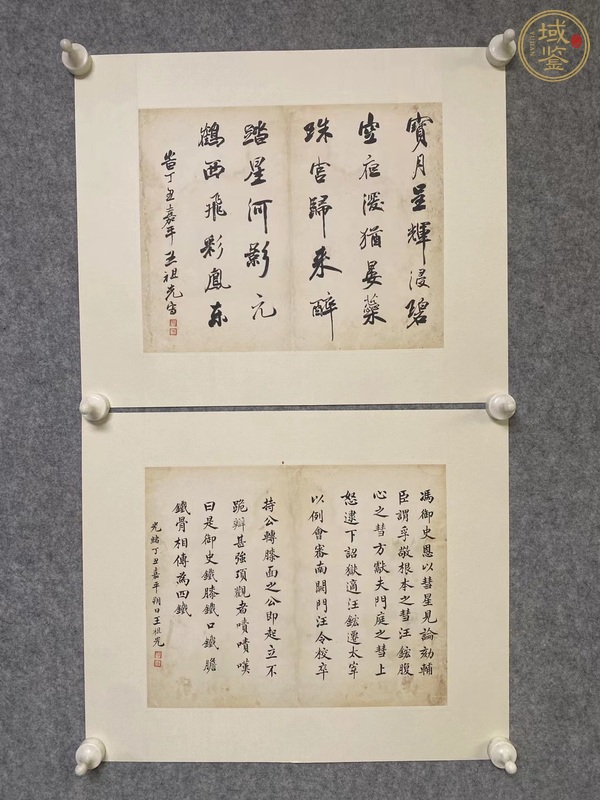 寶月呈輝浸碧
空夜深猶晏蘂
珠宮歸來醉
踏星河影元
鶴西飛彩鳳東
丁丑嘉平王祖光書
馮御史恩以彗星見論劾輔
臣謂孚敬根本之彗汪鋐腹
心之彗方獻夫門庭之彗上
怒逮下詔獄適汪鋐遷太宰
以例會審南闕門汪令校卒
持公轉膝面之公即起立不
跪辯甚強項觀者嘖嘖嘆
曰是御史鐵膝鐵口鐵膽
鐵骨相傳為四鐵
光緒丁丑嘉平朔日王祖光
域鑒
YUJIAN